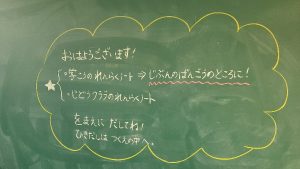 おはようございます！
・学こうのれんらくノート ⇒ じぶんのばんごうのところに！
・じどうクラブのれんらくノート
をまえに だしてね！
ひきだしは つくえの中へ。